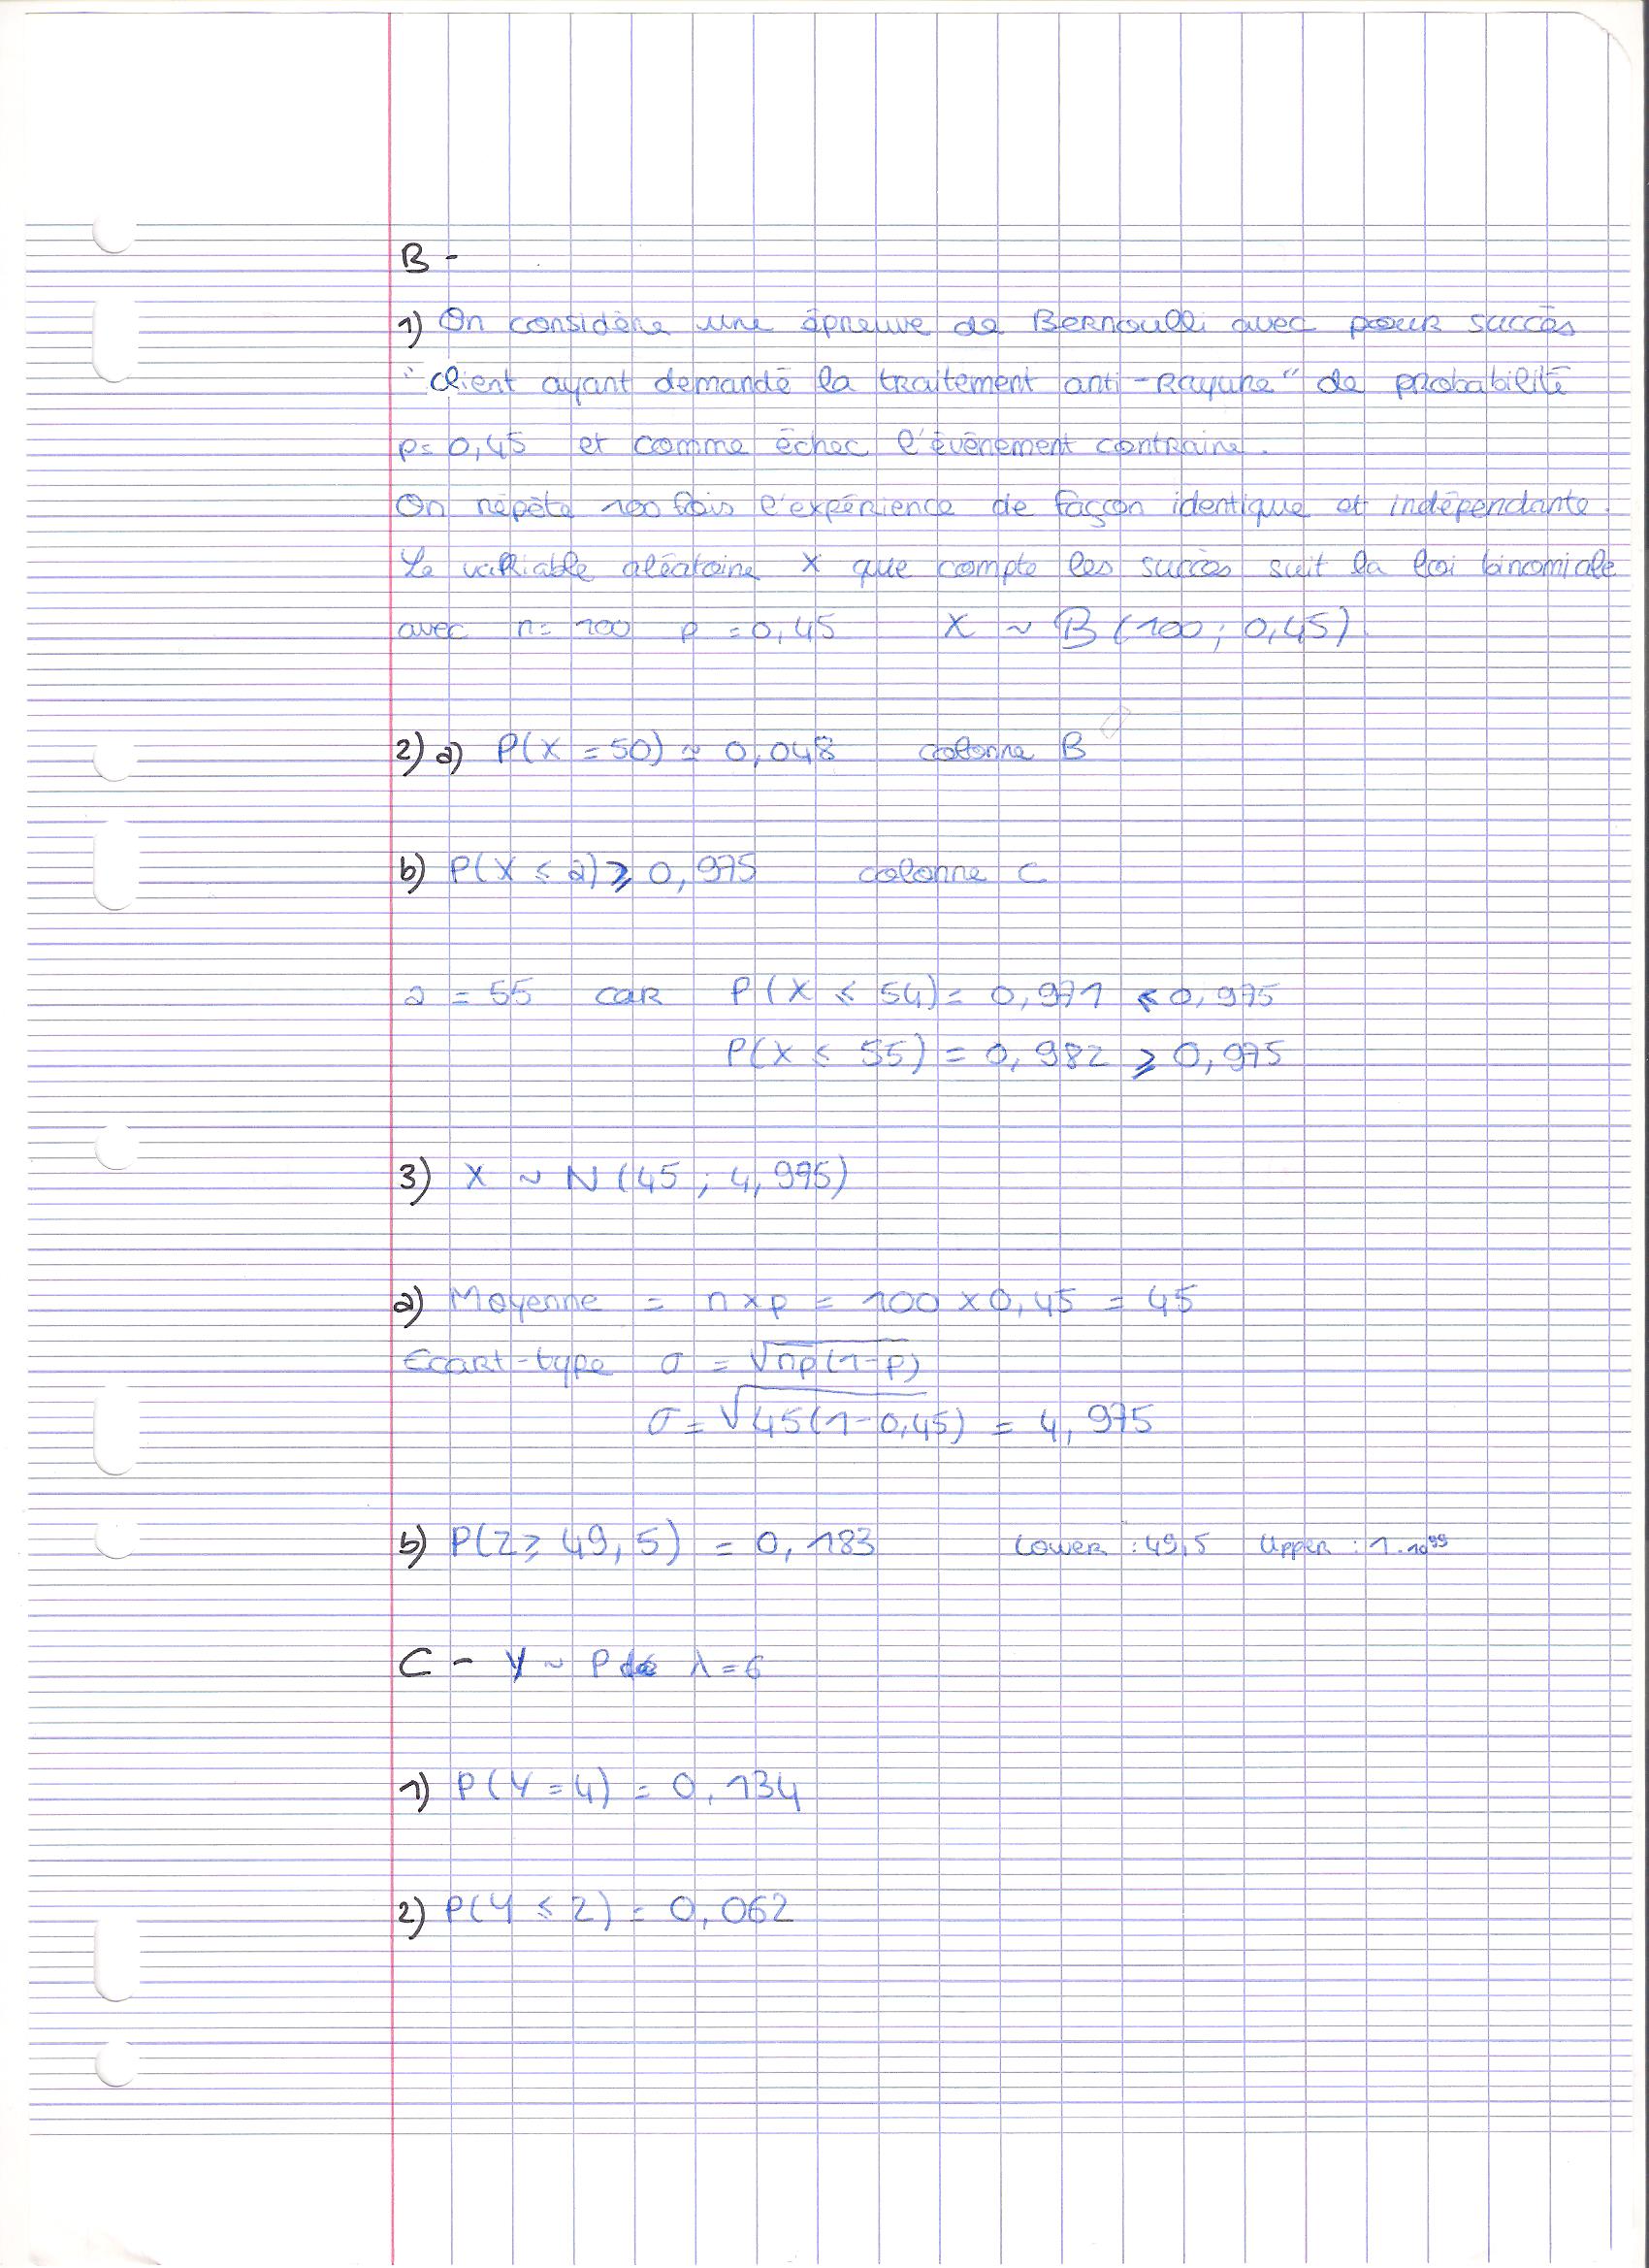 B -
1) On considère une épreuve de Bernoulli avec pour succès
"client ayant demandé la traitement anti-rayure" de probabilité
p= 0,45 et comme échec l'évènement contraire.
On répète 100 fois l'expérience de façon identique et indépendante.
La variable aléatoire X que compte les succès suit la loi binomiale
avec n= 100 p = 0,45 X ~ B (100 ; 0,45).
2) a) P(X = 50) ≈ 0,048 colonne B
b) P(X ≤ a) ≥ 0,975 colonne C
a = 55 car P(X ≤ 54) = 0,971 < 0,975
P(X ≤ 55) = 0,982 ≥ 0,975
3) X ~ N (45 ; 4,975)
a) Moyenne = n x p = 100 x 0,45 = 45
Ecart-type σ = √np(1-p)
σ = √45(1-0,45) = 4,975
b) P(Z ≥ 49,5) = 0,183 Lower : 49,5 Upper : 1.10⁹⁹
C - Y ~ P de λ = 6
1) P(Y = 4) = 0,134
2) P(Y ≤ 2) = 0,062